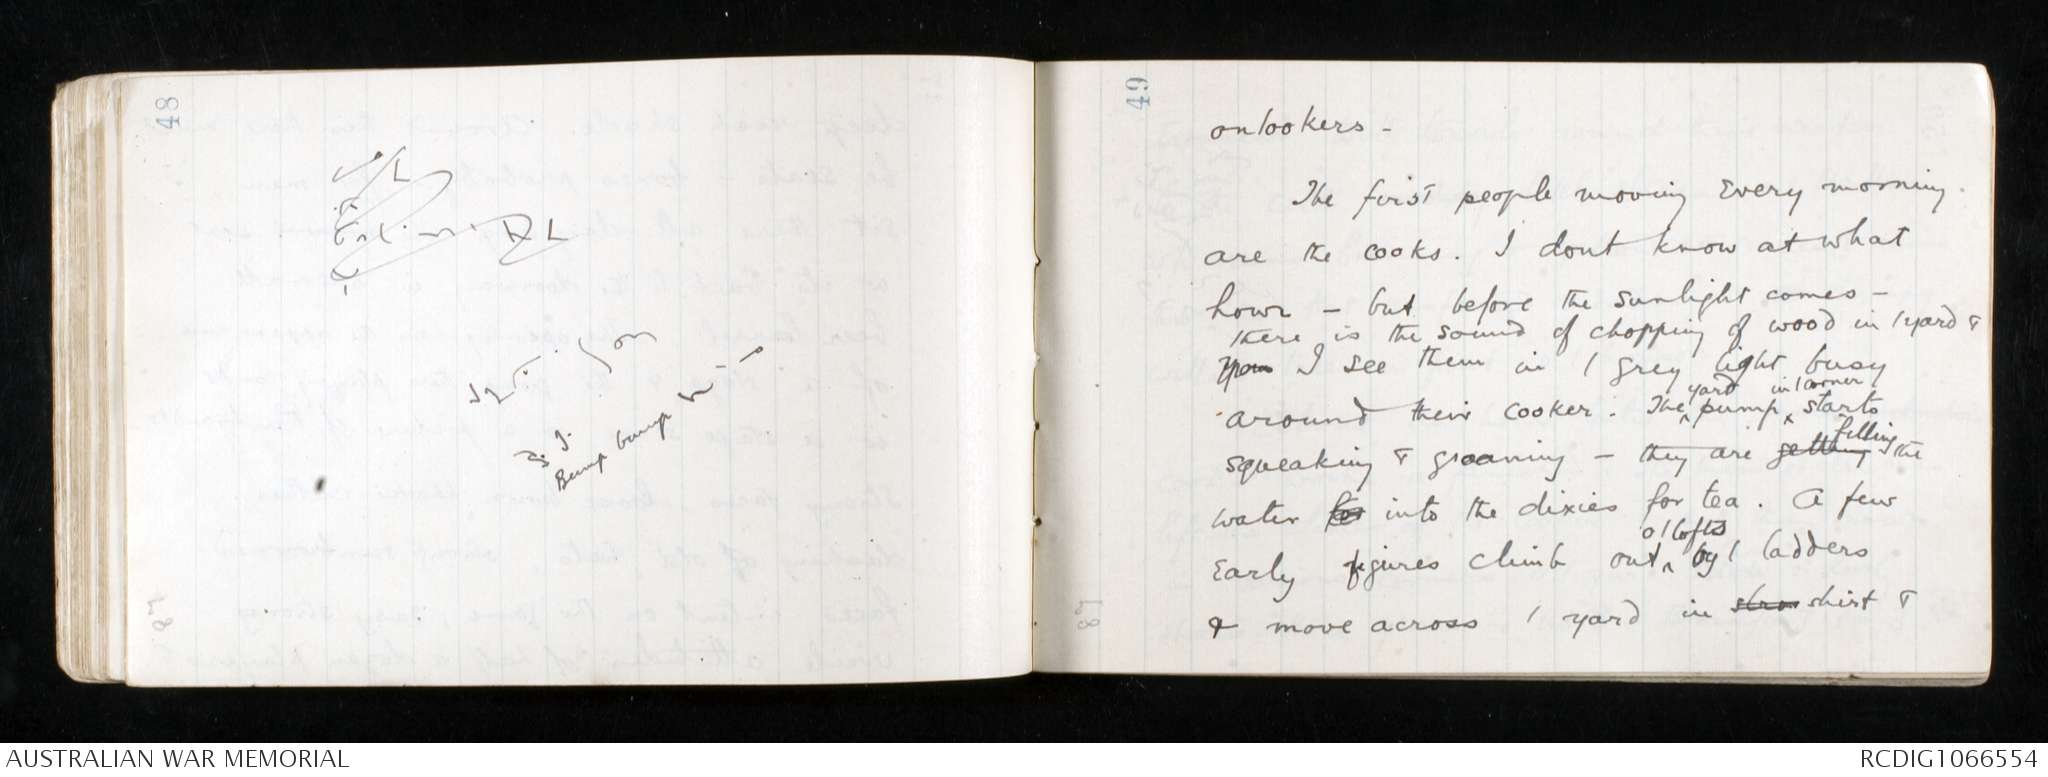 48
Bump bump
49
onlookers -
The first people moving every morning.
are the cooks. I dont know at what
hour - but before the sunlight comes -
there is the sound of chopping of wood in / yard &
I see them in / grey light busy
yard in / corner
around their cooker. The pump starts
filling
squeaking & groaning - they are getting the
water for into the dixies for tea. A few
o / lofts
early figures climb out by / ladders
& move across / yard in shirt &
87
88
AUSTRALIAN WAR MEMORIAL
RCDIG1066554